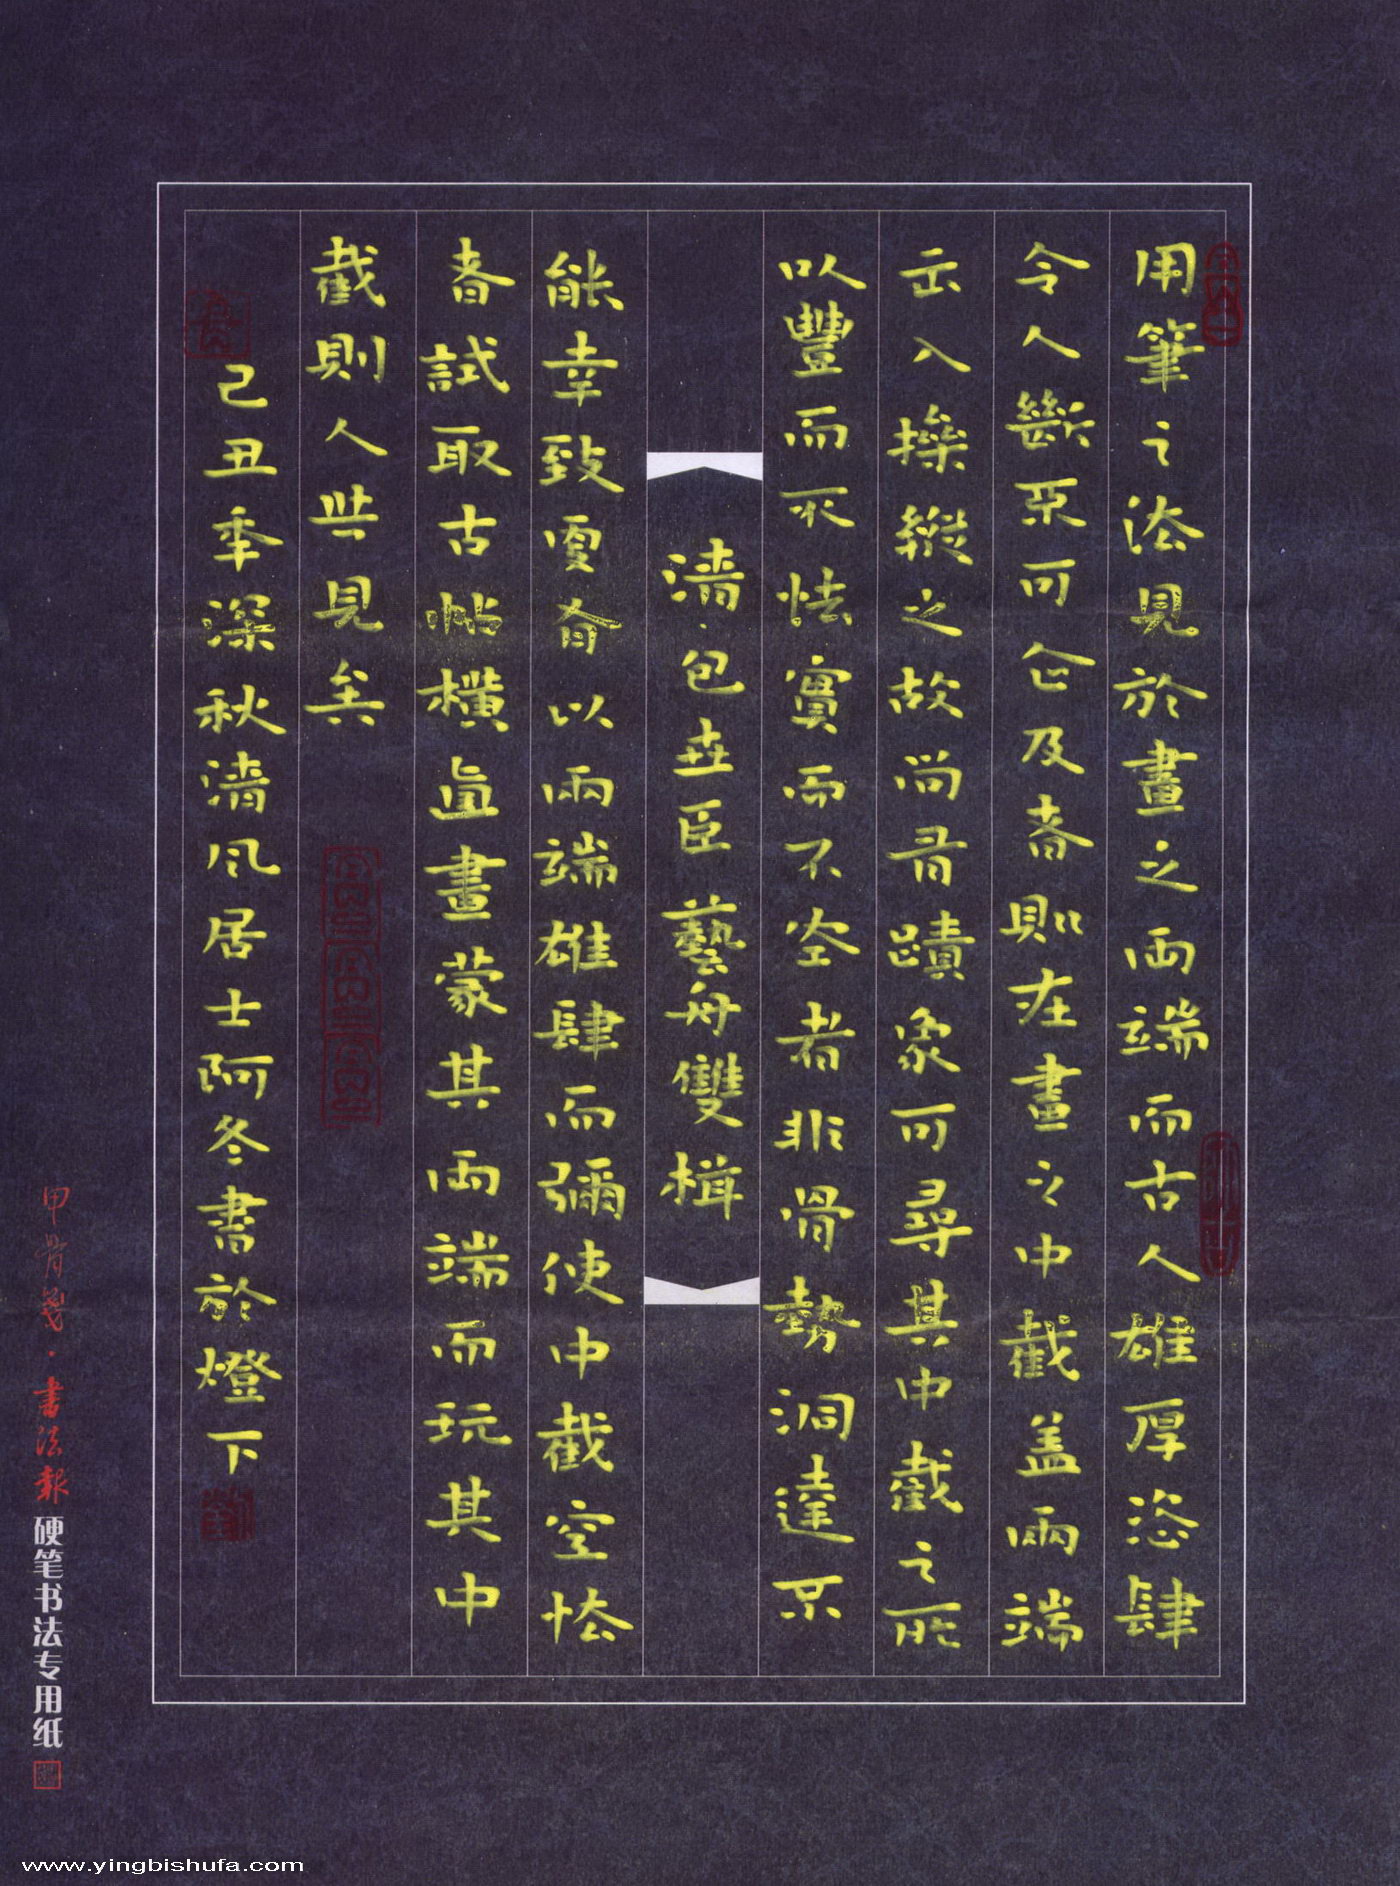 用筆之法見於畫之兩端而古人雄厚恣肆
令人斷不可企及者則在畫之中截蓋兩端
出入操縱之故尚有蹟象可尋其中截之所
以豐而不怯實而不空者非骨勢洞達不
清·包世臣 藝舟雙楫
能幸致更有以兩端雄肆而彌使中截空怯
者試取古帖橫直畫蒙其兩端而玩其中
截則人共見矣
己丑年深秋清風居士阿冬書於燈下
甲骨箋·書法報硬笔书法专用纸
www.yingbishufa.com